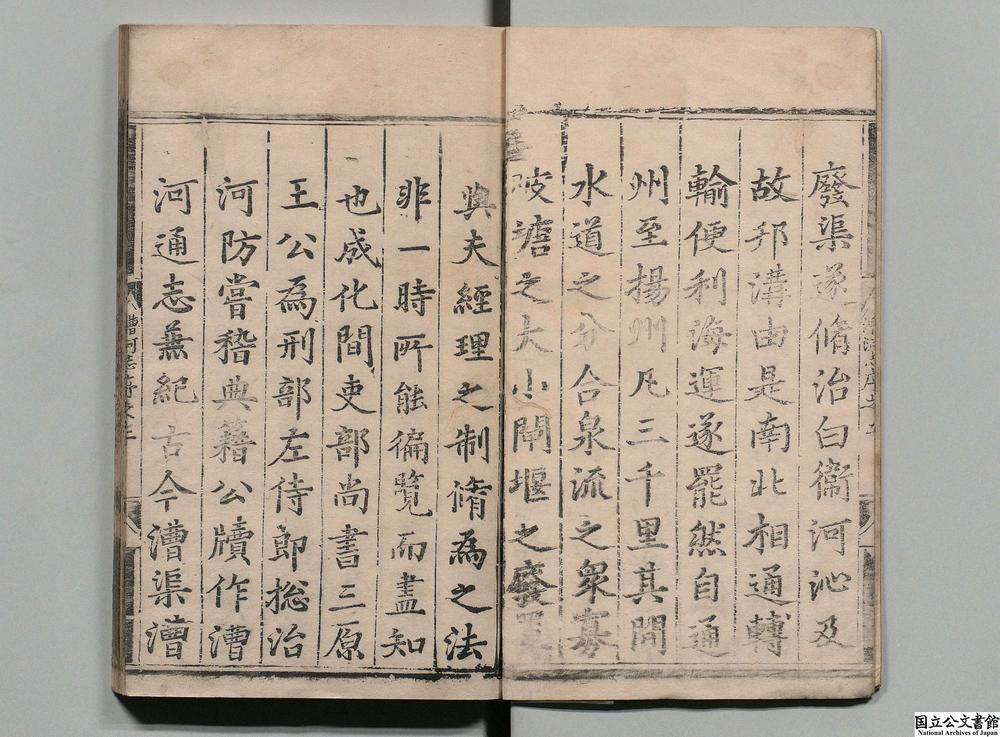 廢渠遂脩治白衞河沁及
故邗溝由是南北相通轉
輸便利海運遂罷然自通
州至揚州凡三千里其間
水道之分合泉流之衆寡
陂塘之大小閘堰之廢置
與夫經理之制脩為之法
非一時所能徧覽而盡知
也成化間吏部尚書三原
王公為刑部左侍郎総治
河防嘗稽典籍公牘作漕
河通志兼紀古今漕渠漕
漕河志序之三
国立公文書館
National Archives of Japan